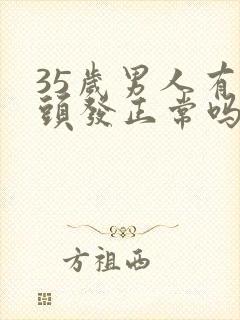 35歲男人有
頭發正常嗎
方祖西